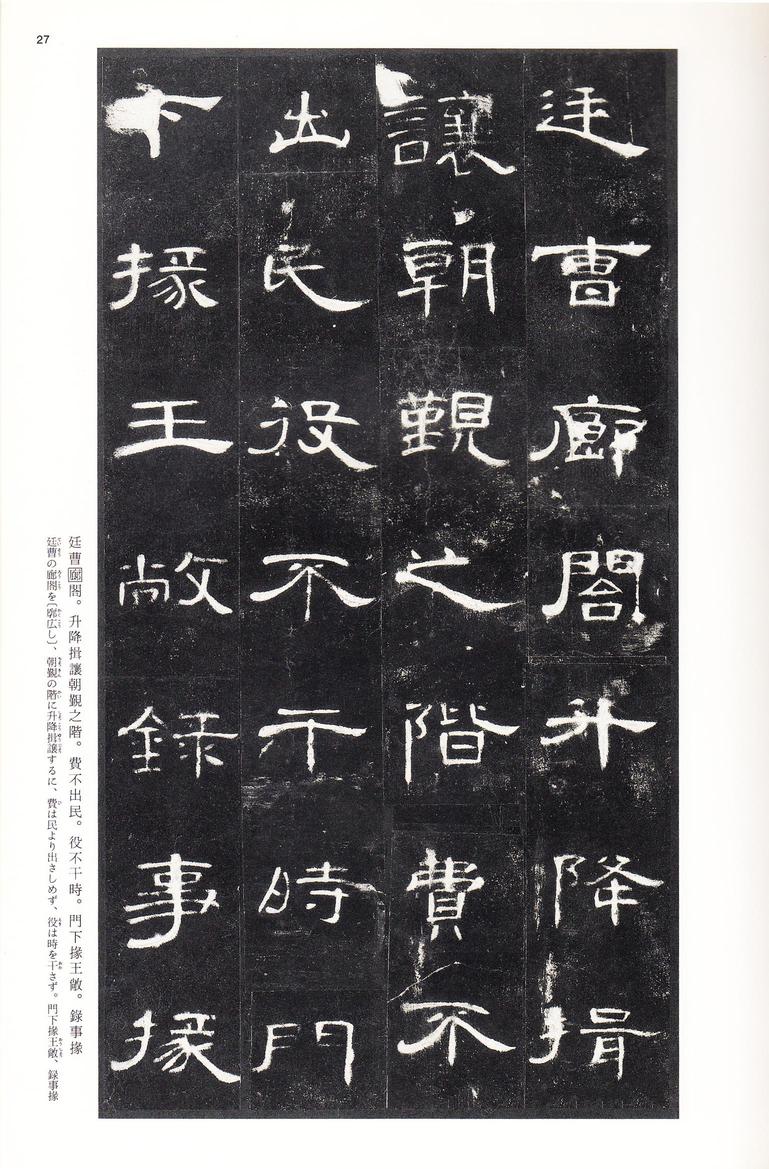 27
廷曹廊閣升降揖
讓朝覲之階費不
出民役不干時門
下掾王敞錄事掾
廷曹廊閣。升降揖讓朝覲之階。費不出民。役不干時。門下掾王敞。錄事掾
廷曹の廊閣を〔廓広し〕、朝覲の階に升降揖讓するに、費は民より出さしめず、役は時を干さず。門下掾王敞、録事掾